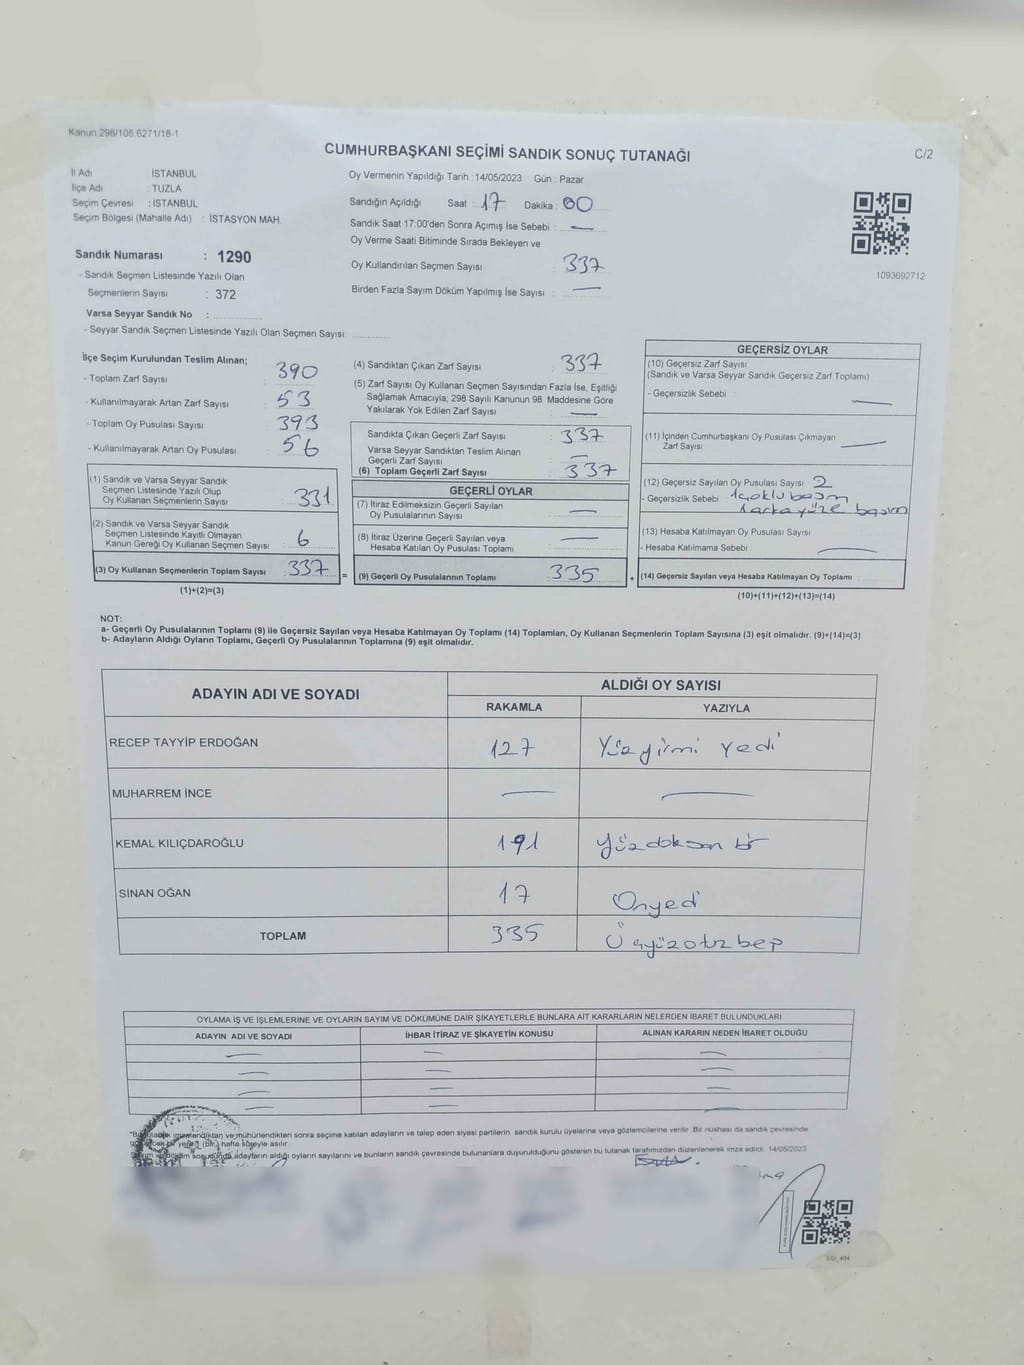 Kanun.298/106.6271/18-1
CUMHURBAŞKANI SEÇİMİ SANDIK SONUÇ TUTANAĞI
C/2
İl Adı : İSTANBUL
İlçe Adı : TUZLA
Seçim Çevresi : İSTANBUL
Seçim Bölgesi (Mahalle Adı) : İSTASYON MAH.
Sandık Numarası : 1290
- Sandık Seçmen Listesinde Yazılı Olan
Seçmenlerin Sayısı : 372
Varsa Seyyar Sandık No :
- Seyyar Sandık Seçmen Listesinde Yazılı Olan Seçmen Sayısı:
Oy Vermenin Yapıldığı Tarih : 14/05/2023 Gün : Pazar
Sandığın Açıldığı Saat : 17 Dakika : 00
Sandık Saat 17:00'den Sonra Açımış İse Sebebi : —
Oy Verme Saati Bitiminde Sırada Bekleyen ve
Oy Kullandırılan Seçmen Sayısı : 337
Birden Fazla Sayım Döküm Yapılmış İse Sayısı : —
1093692712
İlçe Seçim Kurulundan Teslim Alınan;
- Toplam Zarf Sayısı : 390
- Kullanılmayarak Artan Zarf Sayısı : 53
- Toplam Oy Pusulası Sayısı : 393
- Kullanılmayarak Artan Oy Pusulası : 56
(1) Sandık ve Varsa Seyyar Sandık
Seçmen Listesinde Yazılı Olup
Oy Kullanan Seçmenlerin Sayısı : 331
(2) Sandık ve Varsa Seyyar Sandık
Seçmen Listesinde Kayıtlı Olmayan
Kanun Gereği Oy Kullanan Seçmen Sayısı : 6
(3) Oy Kullanan Seçmenlerin Toplam Sayısı : 337
(1)+(2)=(3)
=
(4) Sandıktan Çıkan Zarf Sayısı : 337
(5) Zarf Sayısı Oy Kullanan Seçmen Sayısından Fazla İse, Eşitliği
Sağlamak Amacıyla; 298 Sayılı Kanunun 98. Maddesine Göre
Yakılarak Yok Edilen Zarf Sayısı : —
Sandıkta Çıkan Geçerli Zarf Sayısı : 337
Varsa Seyyar Sandıktan Teslim Alınan
Geçerli Zarf Sayısı : —
(6) Toplam Geçerli Zarf Sayısı : 337
GEÇERLİ OYLAR
(7) İtiraz Edilmeksizin Geçerli Sayılan
Oy Pusulalarının Sayısı : —
(8) İtiraz Üzerine Geçerli Sayılan veya
Hesaba Katılan Oy Pusulası Toplamı : —
(9) Geçerli Oy Pusulalarının Toplamı : 335
+
GEÇERSİZ OYLAR
(10) Geçersiz Zarf Sayısı
(Sandık ve Varsa Seyyar Sandık Geçersiz Zarf Toplamı)
- Geçersizlik Sebebi : —
(11) İçinden Cumhurbaşkanı Oy Pusulası Çıkmayan
Zarf Sayısı —
(12) Geçersiz Sayılan Oy Pusulası Sayısı : 2
- Geçersizlik Sebebi : 1 çoklu basım
1 arka yüze basım
(13) Hesaba Katılmayan Oy Pusulası Sayısı
- Hesaba Katılmama Sebebi : —
(14) Geçersiz Sayılan veya Hesaba Katılmayan Oy Toplamı :
(10)+(11)+(12)+(13)=(14)
NOT:
a- Geçerli Oy Pusulalarının Toplamı (9) ile Geçersiz Sayılan veya Hesaba Katılmayan Oy Toplamı (14) Toplamları, Oy Kullanan Seçmenlerin Toplam Sayısına (3) eşit olmalıdır. (9)+(14)=(3)
b- Adayların Aldığı Oyların Toplamı, Geçerli Oy Pusulalarının Toplamına (9) eşit olmalıdır.
ADAYIN ADI VE SOYADI
ALDIĞI OY SAYISI
RAKAMLA YAZIYLA
RECEP TAYYİP ERDOĞAN 127 Yüzyirmi yedi
MUHARREM İNCE — —
KEMAL KILIÇDAROĞLU 191 yüzdoksan bir
SİNAN OĞAN 17 Onyedi
TOPLAM 335 Üçyüzotuz beş
OYLAMA İŞ VE İŞLEMLERİNE VE OYLARIN SAYIM VE DÖKÜMÜNE DAİR ŞİKAYETLERLE BUNLARA AİT KARARLARIN NELERDEN İBARET BULUNDUKLARI
ADAYIN ADI VE SOYADI İHBAR İTİRAZ VE ŞİKAYETİN KONUSU ALINAN KARARIN NEDEN İBARET OLDUĞU
— — —
— — —
— — —
— — —
imzalandıktan ve mühürlendikten sonra seçime katılan adayların ve talep eden siyasi partilerin sandık kurulu üyelerine veya gözlemcilerine verilir. Bir nüshası da sandık çevresinde
bir yere 1 (bir) hafta süreyle asılır.
döküm sonucunda adayların aldığı oyların sayılarını ve bunların sandık çevresinde bulunanlara duyurulduğunu gösteren bu tutanak tarafımızdan düzenlenerek imza edildi. 14/05/2023